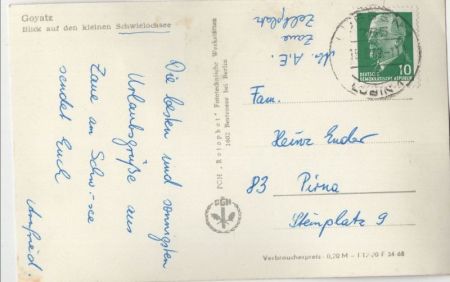 Goyatz
Blick auf den kleinen Schwielochsee
Die besten und sonnigsten
Urlaubsgrüße aus
Zaue am Schw.-see
sendet Euch
Manfred.
PGH „Rotophot" Fototechnische Werkstätten
1602 Bestensee bei Berlin
PGH
Abs. A.E.
Zaue
Zeltplatz
DEUTSCHE
DEMOKRATISCHE REPUBLIK
10
LÜBBEN
Fam.
Heinz Ender
83 Pirna
Steinplatz 9
Verbraucherpreis 0,20 M
F 34 68